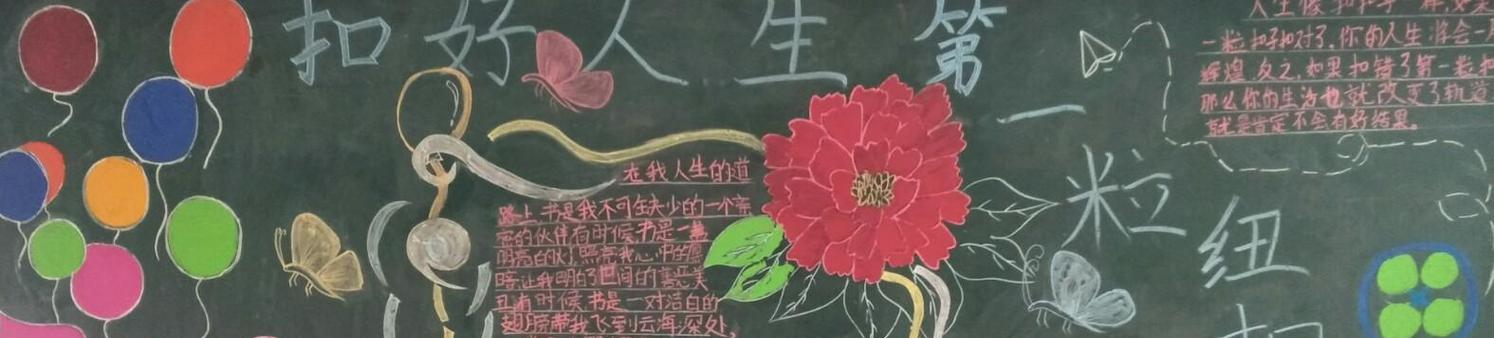 扣好人生第
一
粒
纽
扣
人生像扣扣子一样
一粒扣子扣对了，你的人生将会一
辉煌，反之，如果扣错了第一粒扣
那么你的生活也就改变了轨道
就是肯定不会有好结果。
在我人生的道
路上书是我不可缺少的一个亲
密的伙伴有时候书是一盏
明亮的灯照亮我心中的黑
暗让我明白了世间的善恶美
丑有时候书是一对洁白的
翅膀带我飞到云海深处，